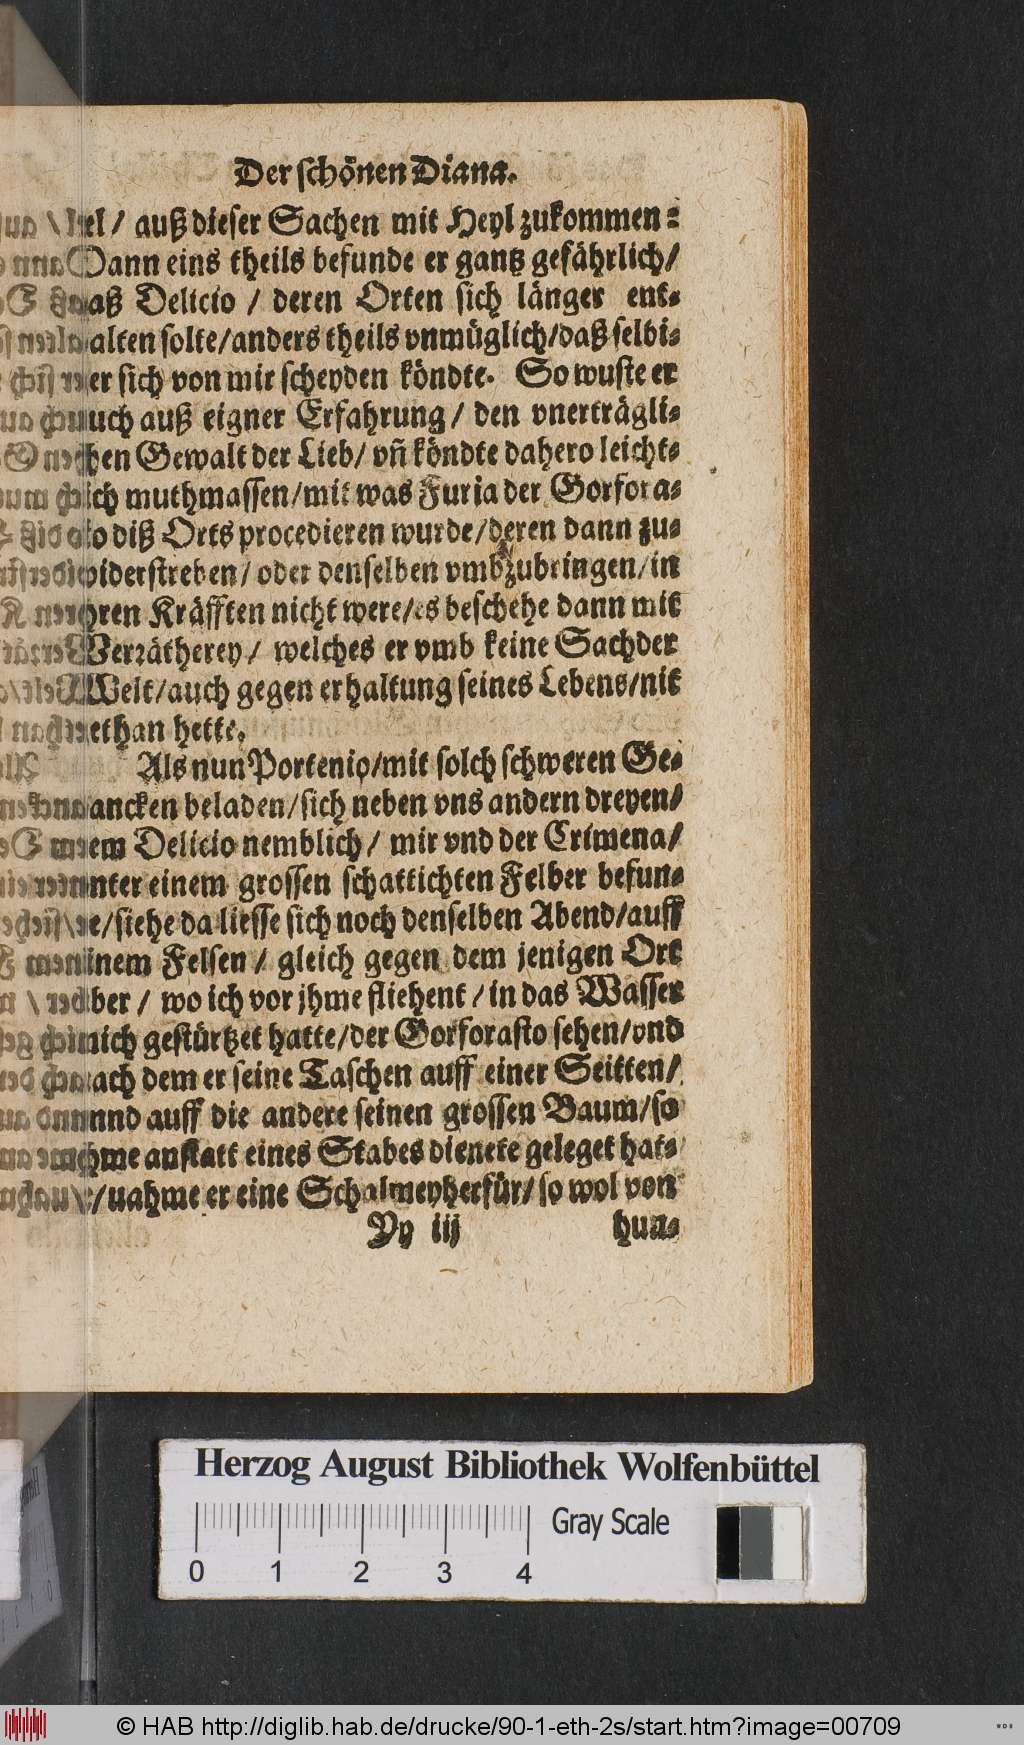 Der schönen Diana.
tel / auß dieser Sachen mit Heyl zukommen:
Dann eins theils befunde er gantz gefährlich/
daß Delicio / deren Orten sich länger ent-
halten solte/anders theils vnmüglich/daß selbi-
er sich von mir scheyden köndte. So wuste er
auch auß eigner Erfahrung / den vnerträgli-
chen Gewalt der Lieb/ vñ köndte dahero leicht-
lich muthmassen/mit was Furia der Gorfora-
sto diß Orts procedieren wurde/deren dann zu-
widerstreben/ oder denselben vmbzubringen/in
jhren Kräfften nicht were/es beschehe dann mit
Verrätherey / welches er vmb keine Sach der
Welt/auch gegen erhaltung seines Lebens/nit
gethan hette.
Als nun Portenio/mit solch schweren Ge-
dancken beladen/sich neben vns andern dreyen/
dem Delicio nemblich / mir vnd der Crimena/
vnter einem grossen schattichten Felber befun-
de/siehe da liesse sich noch denselben Abend/auff
einem Felsen / gleich gegen dem jenigen Ort
über / wo ich vor jhme fliehent / in das Wasser
mich gestürtzet hatte/der Gorforasto sehen/vnd
nach dem er seine Taschen auff einer Seitten/
vnnd auff die andere seinen grossen Baum/so
jhme anstatt eines Stabes dienete geleget hat-
te/nahme er eine Schalmeyherfür/ so wol von
Yy iij
hun-
Herzog August Bibliothek Wolfenbüttel
Gray Scale
0 1 2 3 4
© HAB http://diglib.hab.de/drucke/90-1-eth-2s/start.htm?image=00709